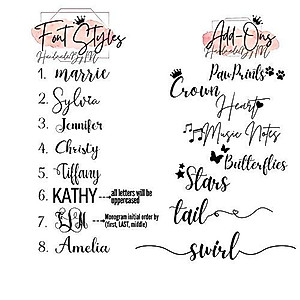 Font Styles
HandmadeByHM
1. marrie
2. Sylvia
3. Jennifer
4. Christy
5. Tiffany
6. KATHY → all letters will be uppercased
7. Monogram initial order by (first, LAST, middle)
8. Amelia
Add-Ons
HandmadeByHM
PawPrints
Crown
Heart
Music Notes
Butterflies
Stars
tail
swirl